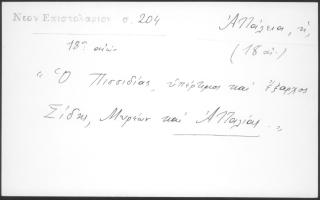 Νεον Επιστολαριον σ. 204
Ἀττάλεια, ἡ,
18ος αἰών
(18 αἰ.)
"Ὁ Πισσιδίας, ὑπέρτιμος καὶ ἔξαρχος
Σίδης, Μυρέων καὶ Ἀτταλίας."